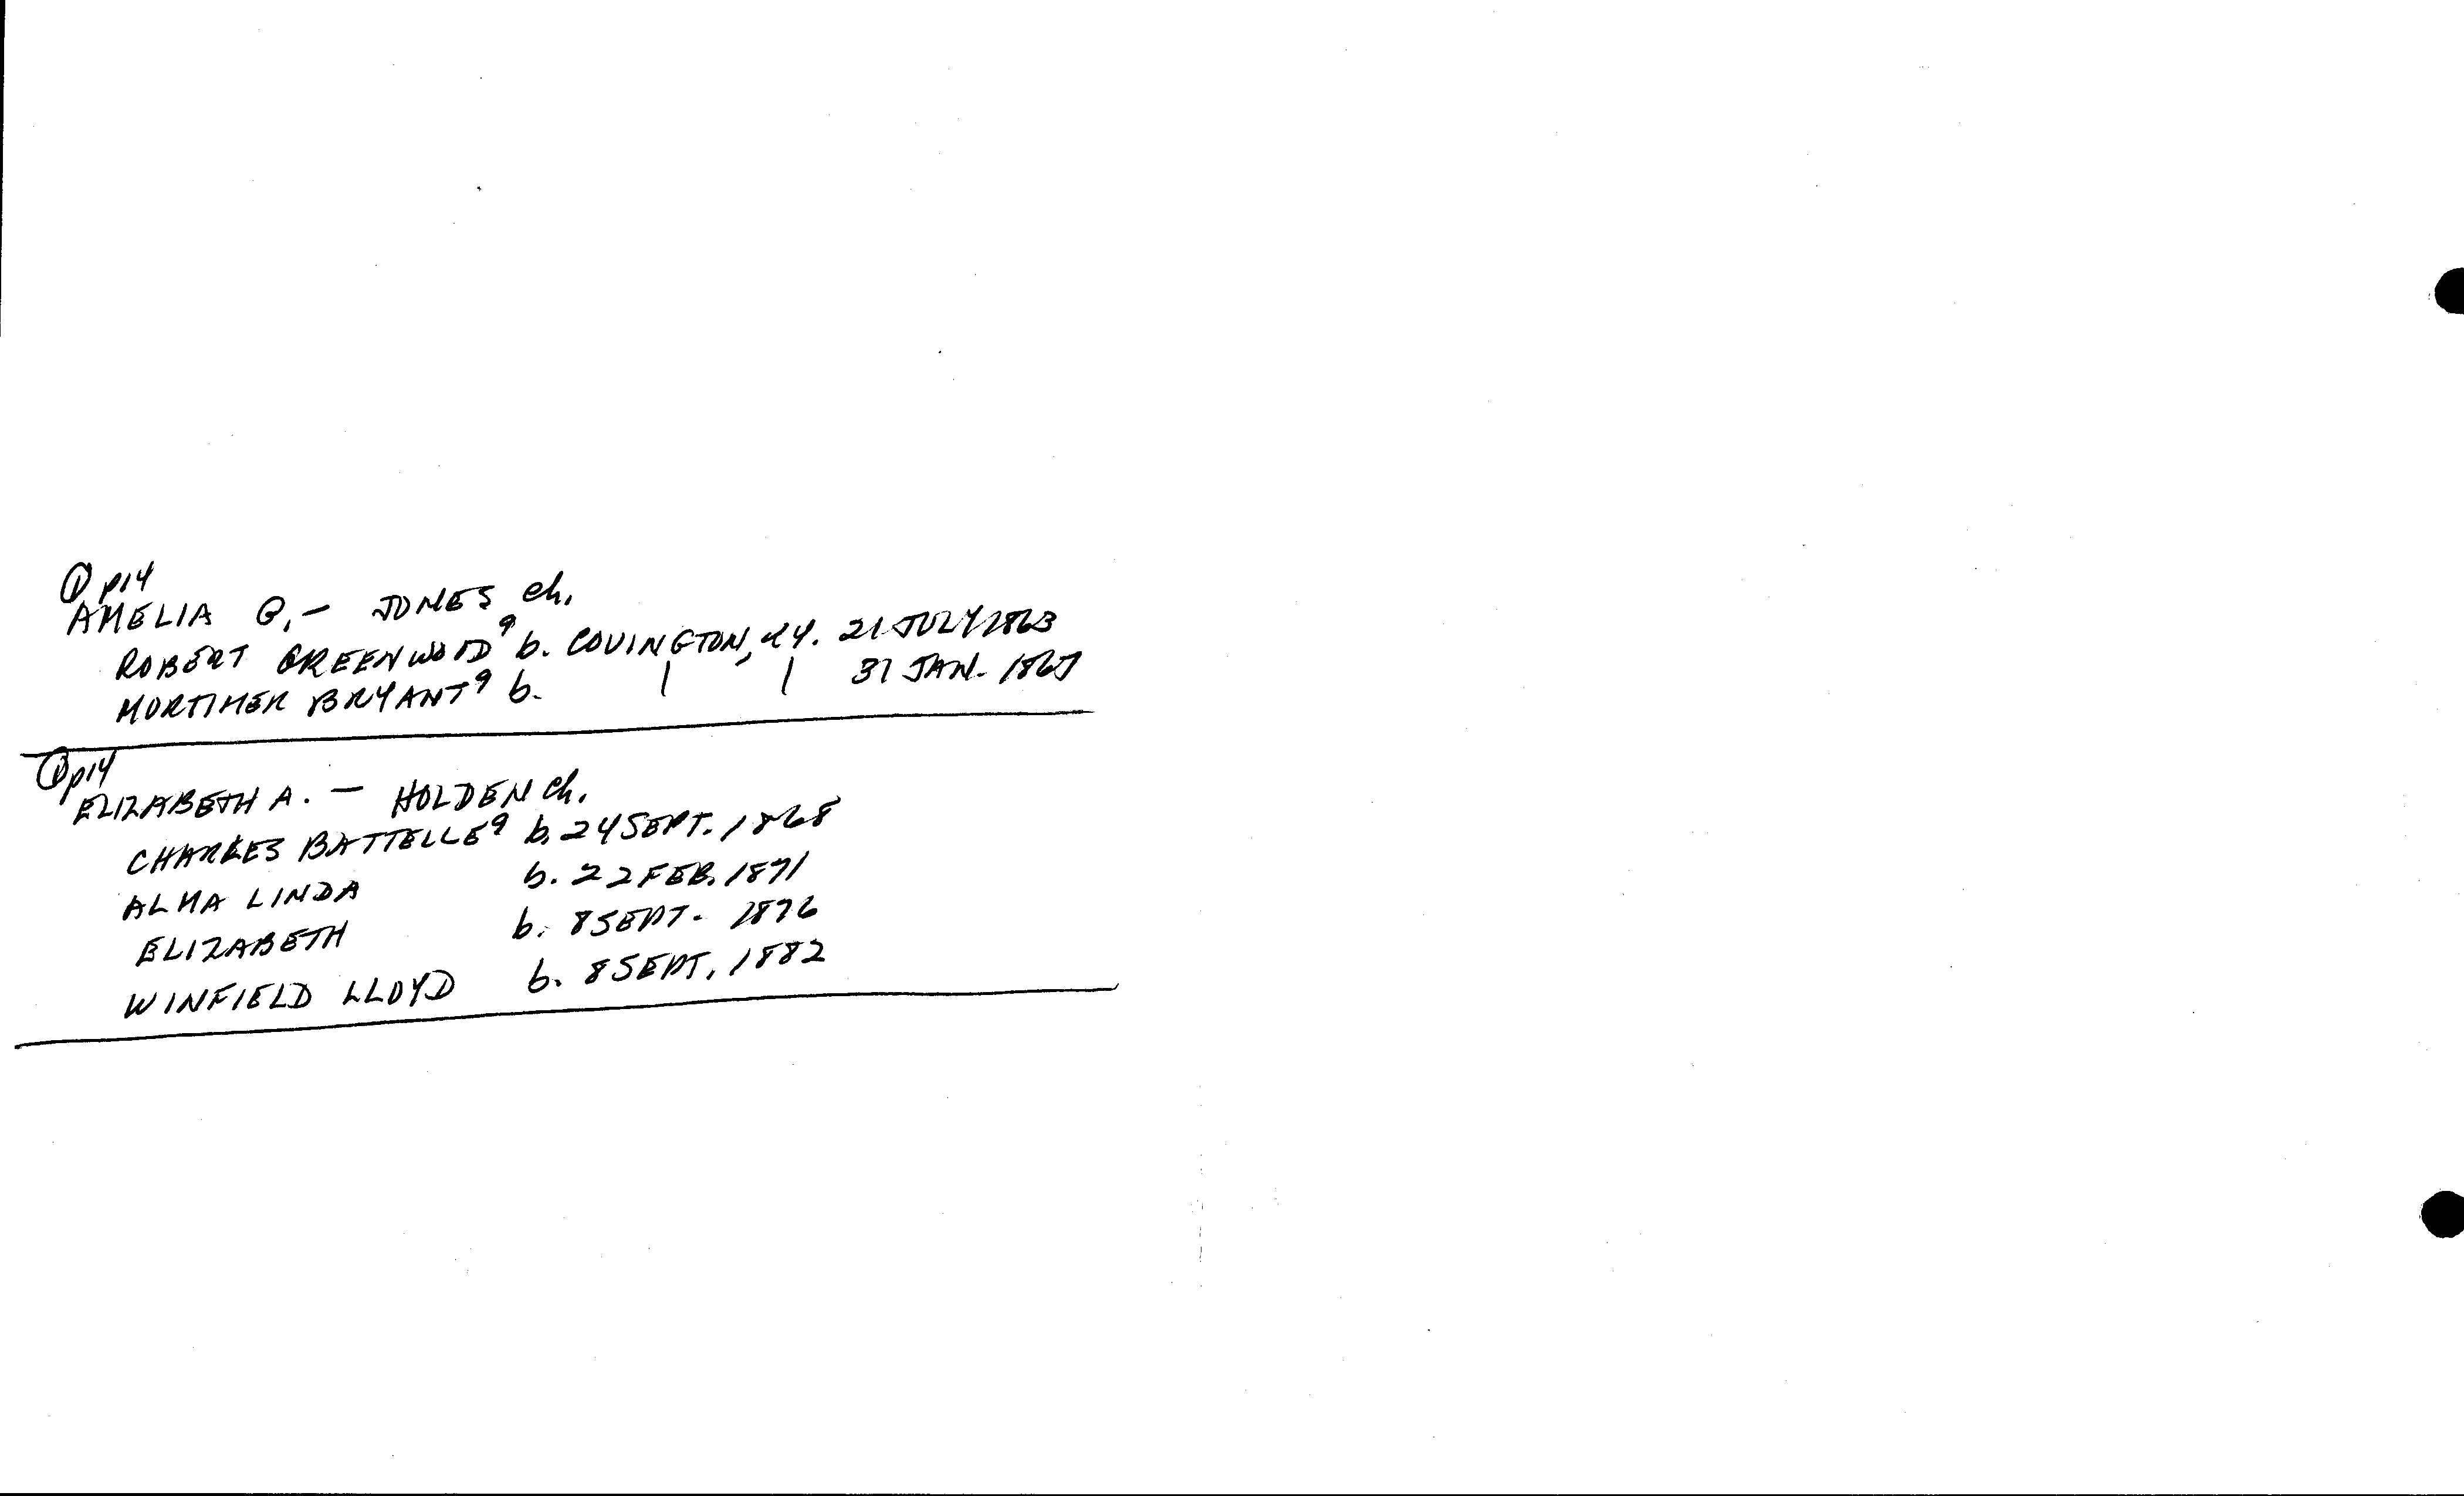 ① p14
AMELIA G. — JONES ch.
ROBERT GREENWOOD⁹ b. COVINGTON, KY. 21 JULY 1863
MORTIMER BRYANT⁹ b. | | 31 JAN. 1865
① p14
ELIZABETH A. — HOLDEN ch.
CHARLES BATTELLE⁹ b. 24 SEPT. 1868
ALMA LINDA b. 22 FEB. 1871
ELIZABETH b. 8 SEPT. 1876
WINFIELD LLOYD b. 8 SEPT. 1882